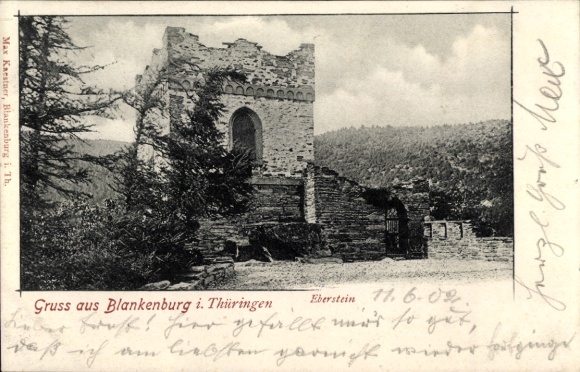 Max Kaestner, Blankenburg i. Th.
Gruss aus Blankenburg i. Thüringen
Eberstein
11.6.09.
Lieber Ernst! Hier gefällt mir's so gut,
daß ich am liebsten garnicht wieder fortginge
herzl. Gruß Max